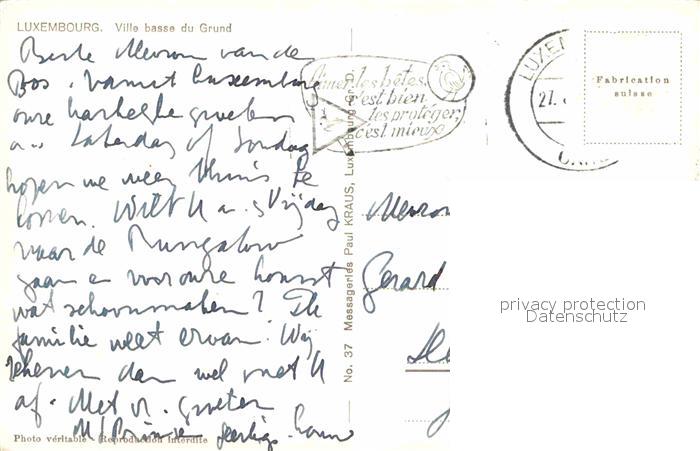 LUXEMBOURG. Ville basse du Grund
Beste Mevrouw van de
Bos. Vanuit Luxemburg
onze hartelijke groeten
Zaterdag of Zondag
hopen we weer thuis te
komen. Wilt U a.s. Vrijdag
naar de Bungalow
gaan en voor onze komst
wat schoonmaken? De
familie weet ervan. Wij
rekenen dan wel met U
af. Met vr. groeten
Photo véritable - Reproduction interdite
No. 37 Messageries Paul KRAUS, Luxembourg
Aimer les bêtes,
c'est bien,
les protéger,
c'est mieux
LUXEM
27.
Fabrication
suisse
Mevrou
Gerard
privacy protection
Datenschutz